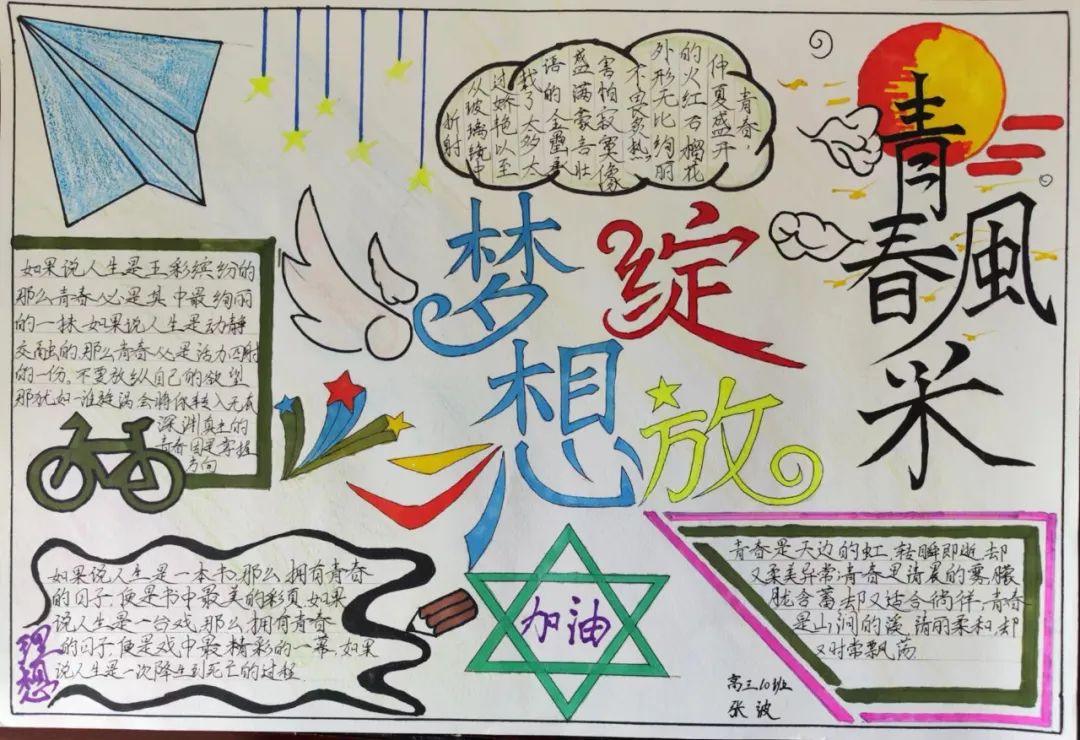 青春,
仲夏盛开
的火红石榴花
外形无比绚丽
不畏炎热
害怕寂寞像
盛满豪言壮
语的金
载了太多太
过娇艳以至
从玻璃镜中
折射
青春
風采
梦想
绽放
如果说人生是五彩缤纷的
那么青春必是其中最绚丽
的一抹.如果说人生是动静
交融的,那么青春必是活力四射
的一份。不要放纵自己的欲望
那犹如一谁旋涡会将你转入无底
深渊真正的
青春因是掌握
方向
如果说人生是一本书,那么拥有青春
的日子,便是书中最美的彩页.如果
说人生是一台戏,那么拥有青春
的日子便是戏中最精彩的一幕,如果
说人生是一次降生到死亡的过程
理想
加油
青春是天边的虹,转瞬即逝,却
又柔美异常;青春是清晨的雾,朦
胧含蓄却又适合徜徉,青春
是山涧的溪,清丽柔和,却
又时常飘荡
高三10班
张波